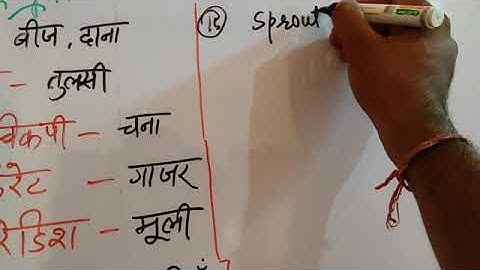 बीज, दाना
– तुलसी
चिकपी – चना
– गाजर
रेडिश – मूली
12 Sprout